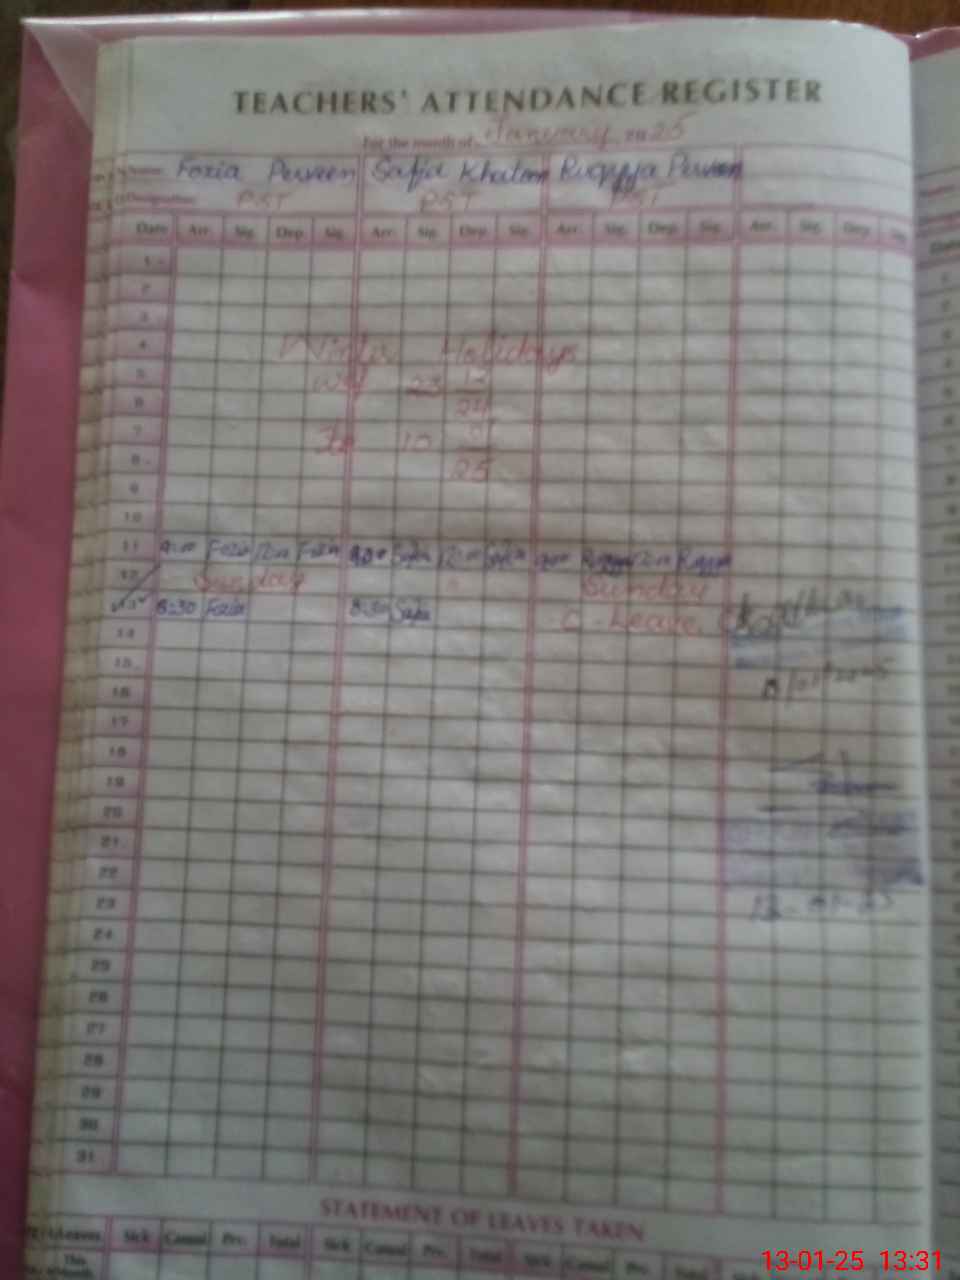 TEACHERS' ATTENDANCE REGISTER
For the month of January 2025
Name Fozia Perveen Safia Khatoon Ruqayya Perveen
Designation PST PST PST
Date Arr. Sig. Dep. Sig. Arr. Sig. Dep. Sig. Arr. Sig. Dep. Sig. Arr. Sig. Dep.
1
2
3
4 Winter Holidays
5 23 12
6 24
7 10 01
8 25
9
10
11 9:00 Fozia 12:00 Fozia 9:00 Safia 12:00 Safia 9:00 Ruqayya 12:00 Ruqayya
12 Sunday Sunday
13 8:30 Fozia 8:30 Safia C-Leave
14
15
16
17
18
19
20
21
22
23
24
25
26
27
28
29
30
31
STATEMENT OF LEAVES TAKEN
Leaves Sick Casual Prv. Total Sick Casual Prv. Total Sick Casual Prv. Total Sick Casual Prv.
This
13-01-25 13:31